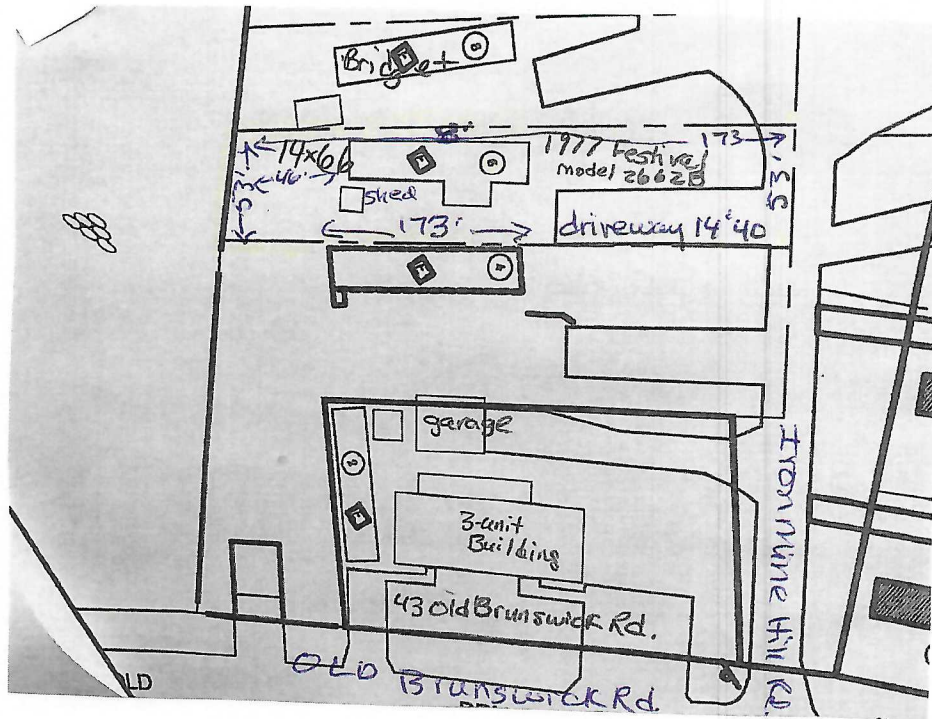 Bridget
14x66
1977 Festival
173
model 26628
53'
46'
53'
shed
173'
driveway 14'40
garage
3-unit
Building
43 old Brunswick Rd.
Iron Mine Hill Rd.
OLD Brunswick Rd.
LD